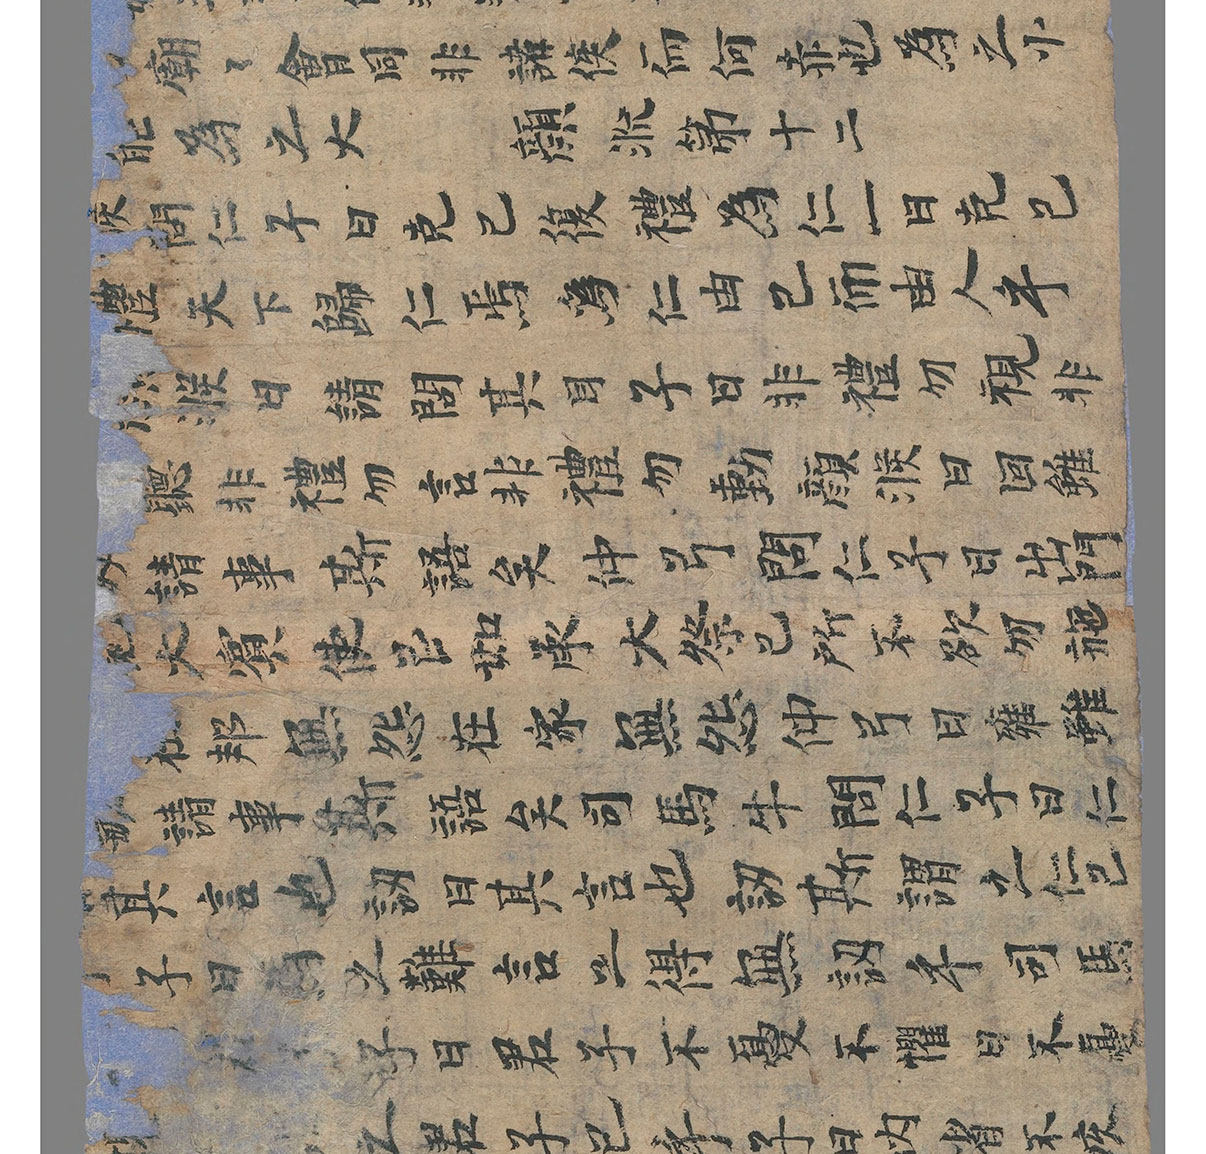 廟〻會同非諸侯而何赤也為之小
能為之大 顏淵第十二
問仁子曰克己復禮為仁一日克己
禮天下歸仁焉為仁由己而由人乎
淵曰請問其目子曰非禮勿視非
聽非禮勿言非禮勿動顏淵曰回雖
請事斯語矣仲弓問仁子曰出門
大賓使民如承大祭己所不欲勿施
在邦無怨在家無怨仲弓曰雍雖
請事斯語矣司馬牛問仁子曰仁
其言也訒曰其言也訒斯謂之仁已
子曰為之難言之得無訒乎司馬
子曰君子不憂不懼曰不憂
之君子已乎子曰內省不疚